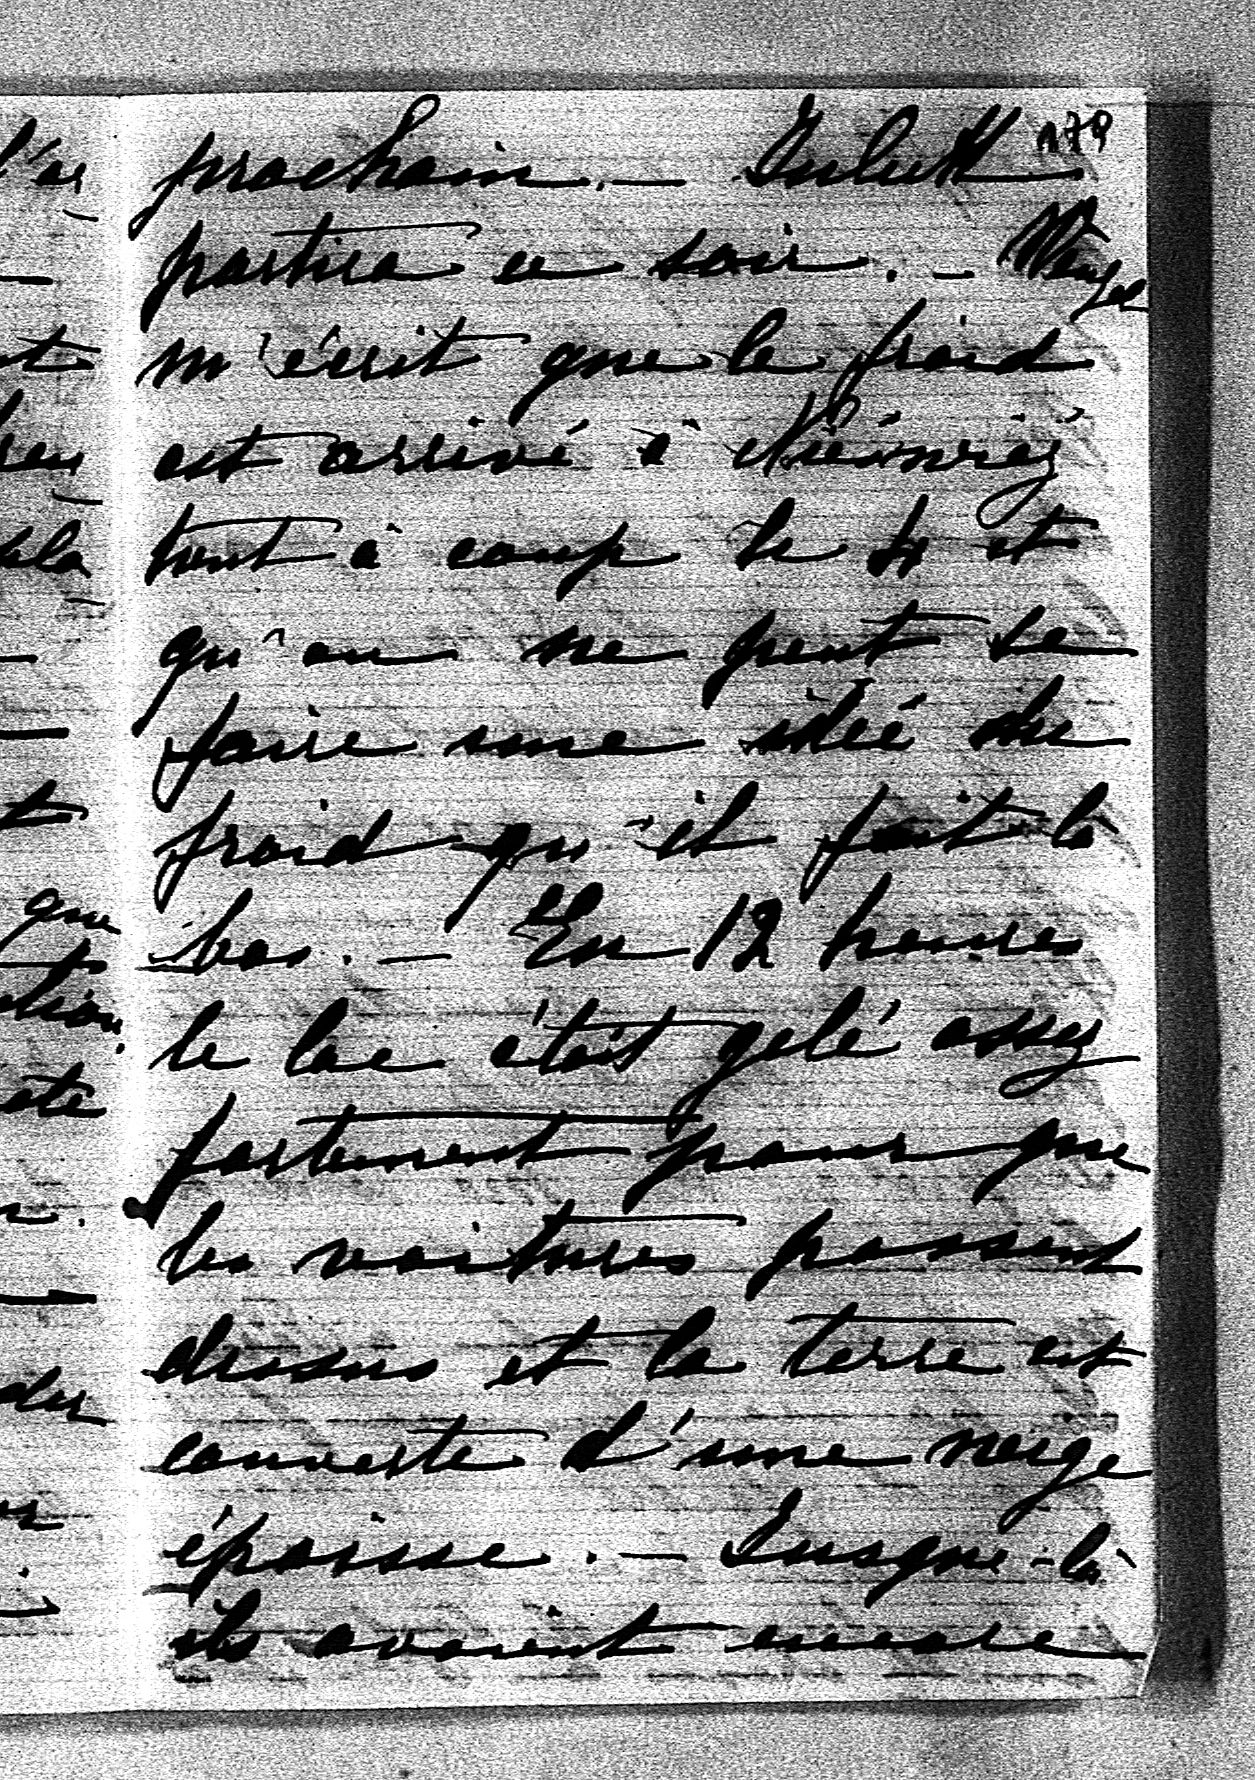 179
prochain. — Juliette
partira ce soir. — Wenzel
m'écrit que le froid
est arrivé à Niéswież
tout à coup le 4 et
qu'on ne peut se
faire une idée du
froid qu'il fait là
bas. — En 12 heures
le lac était gelé assez
fortement pour que
les voitures passent
dessus et la terre est
couverte d'une neige
épaisse. — Jusque-là
ils avaient encore